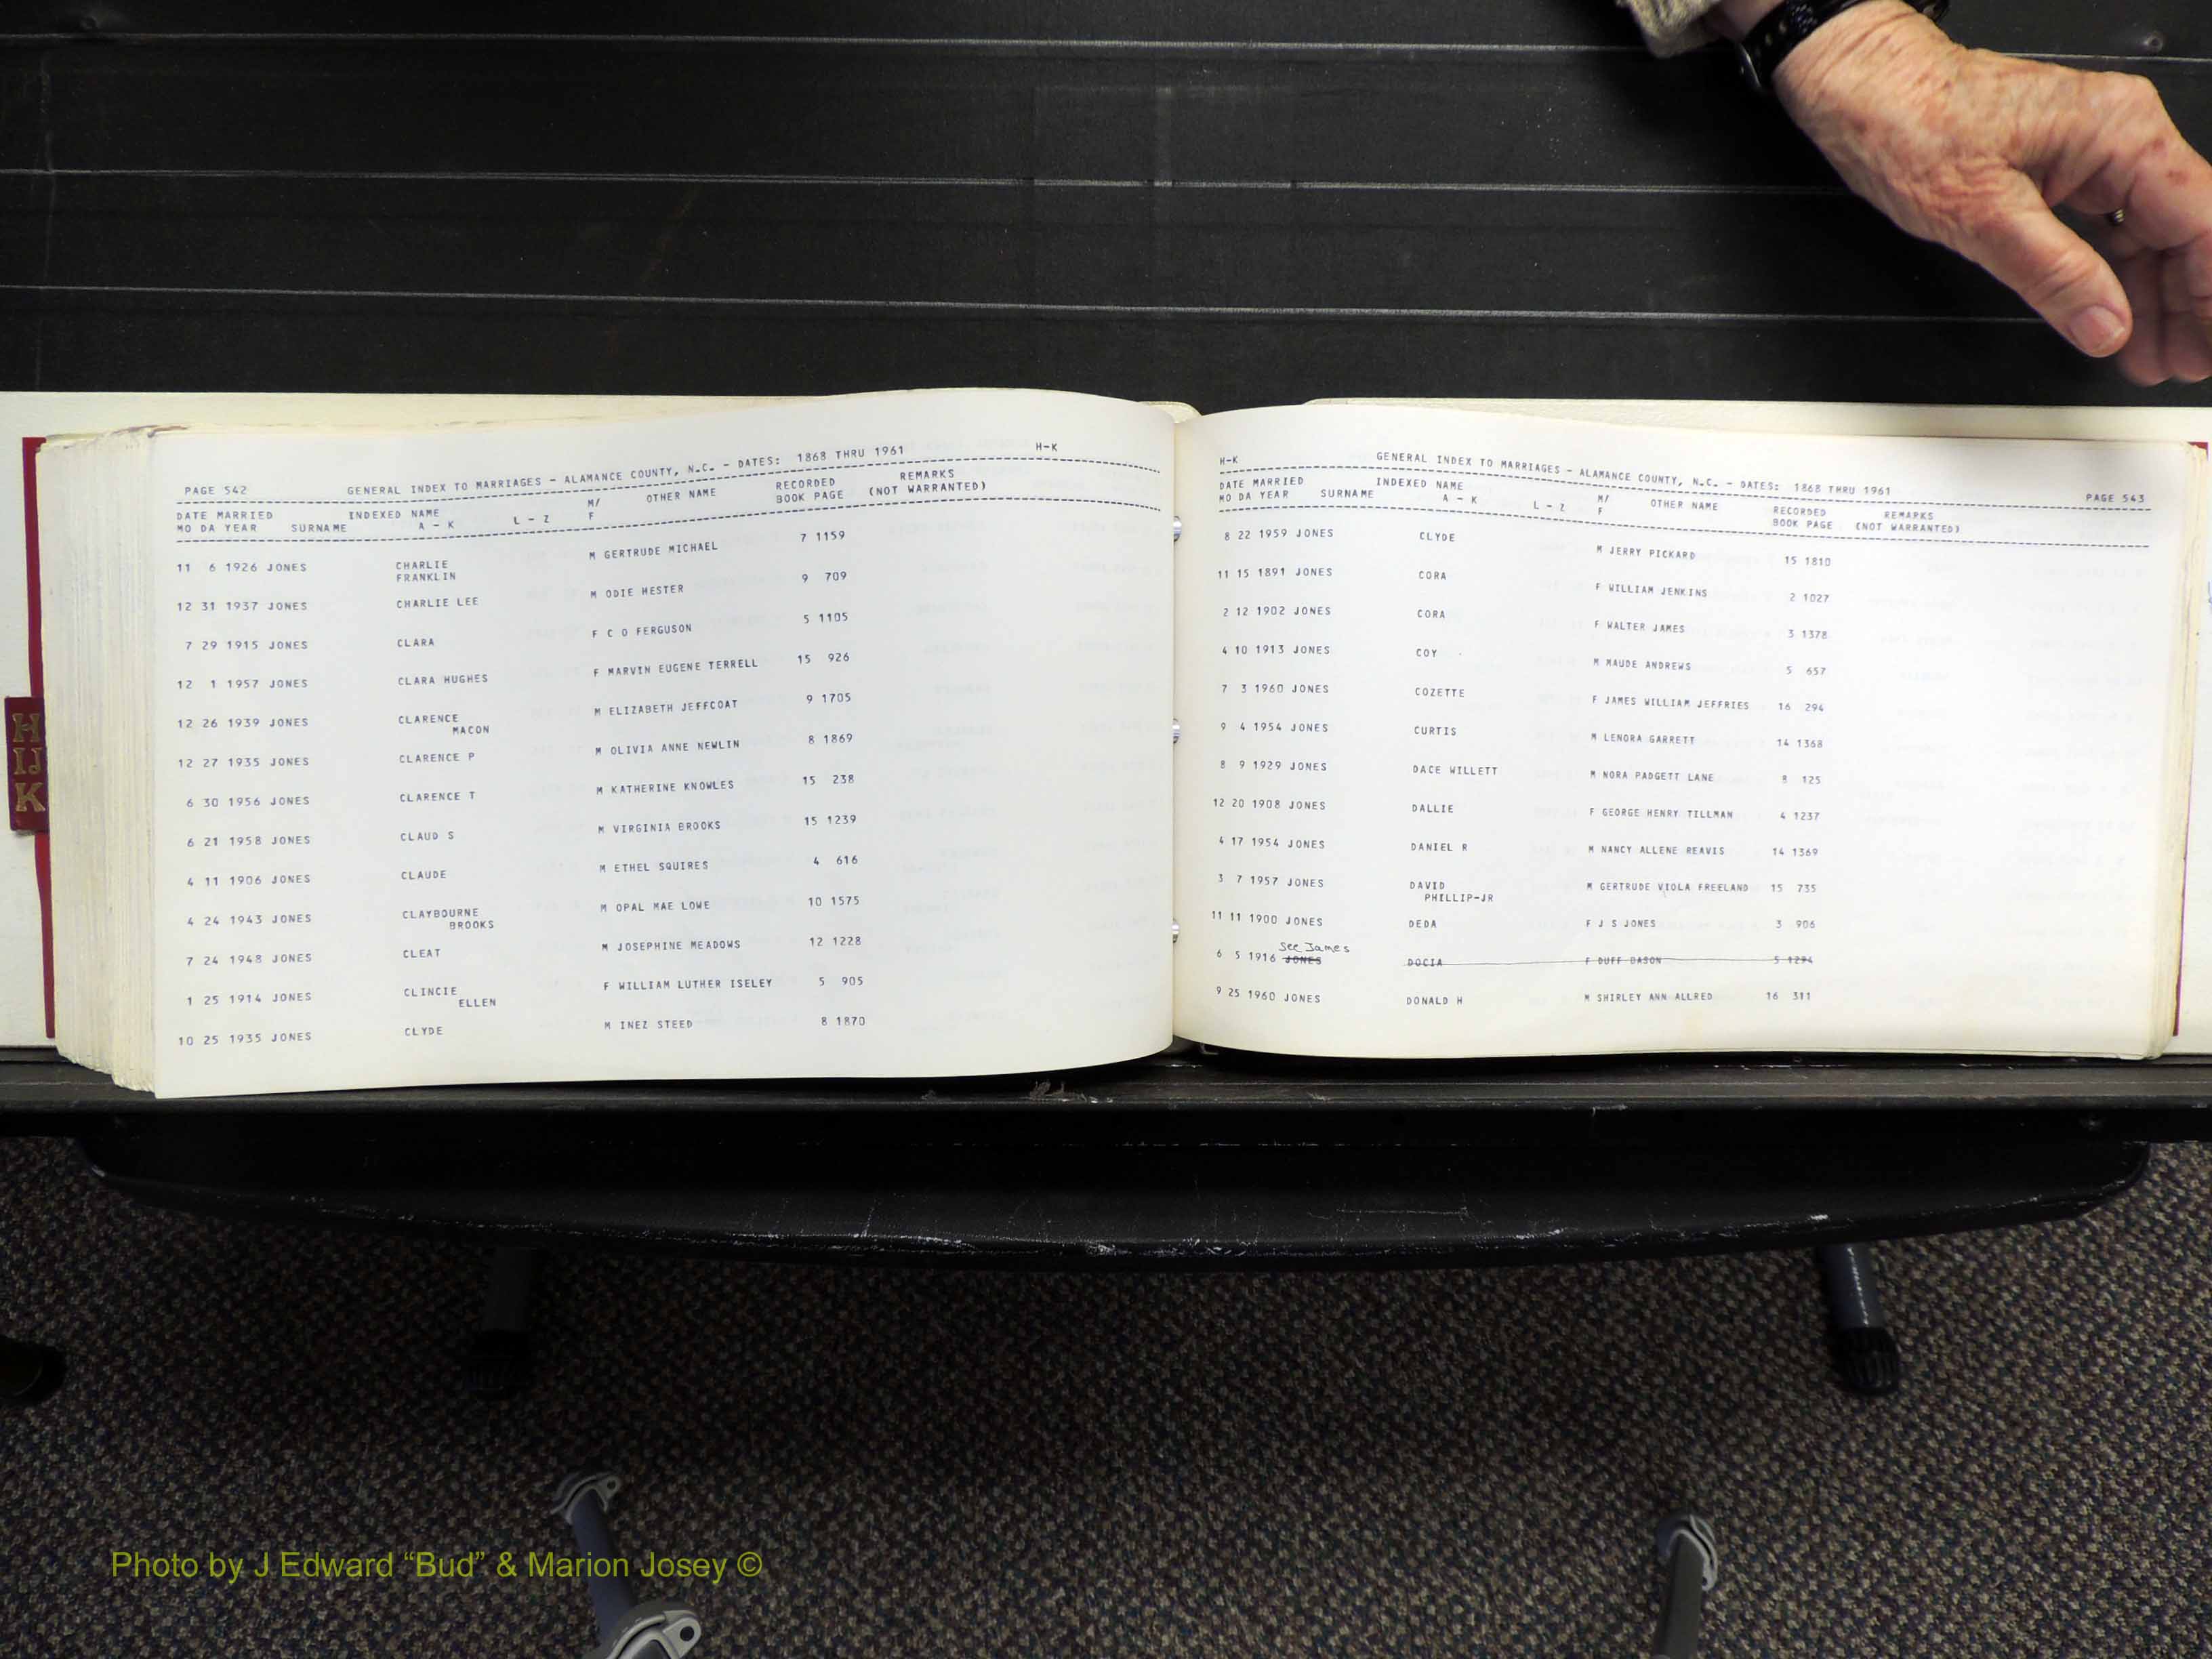 PAGE 542 GENERAL INDEX TO MARRIAGES - ALAMANCE COUNTY, N.C. - DATES: 1868 THRU 1961 H-K
DATE MARRIED INDEXED NAME M/ OTHER NAME RECORDED REMARKS
MO DA YEAR SURNAME A - K L - Z F BOOK PAGE (NOT WARRANTED)
11 6 1926 JONES CHARLIE M GERTRUDE MICHAEL 7 1159
FRANKLIN
12 31 1937 JONES CHARLIE LEE M ODIE HESTER 9 709
7 29 1915 JONES CLARA F C O FERGUSON 5 1105
12 1 1957 JONES CLARA HUGHES F MARVIN EUGENE TERRELL 15 926
12 26 1939 JONES CLARENCE M ELIZABETH JEFFCOAT 9 1705
MACON
12 27 1935 JONES CLARENCE P M OLIVIA ANNE NEWLIN 8 1869
6 30 1956 JONES CLARENCE T M KATHERINE KNOWLES 15 238
6 21 1958 JONES CLAUD S M VIRGINIA BROOKS 15 1239
4 11 1906 JONES CLAUDE M ETHEL SQUIRES 4 616
4 24 1943 JONES CLAYBOURNE M OPAL MAE LOWE 10 1575
BROOKS
7 24 1948 JONES CLEAT M JOSEPHINE MEADOWS 12 1228
1 25 1914 JONES CLINCIE F WILLIAM LUTHER ISELEY 5 905
ELLEN
10 25 1935 JONES CLYDE M INEZ STEED 8 1870
H-K GENERAL INDEX TO MARRIAGES - ALAMANCE COUNTY, N.C. - DATES: 1868 THRU 1961 PAGE 543
DATE MARRIED INDEXED NAME M/ OTHER NAME RECORDED REMARKS
MO DA YEAR SURNAME A - K L - Z F BOOK PAGE (NOT WARRANTED)
8 22 1959 JONES CLYDE M JERRY PICKARD 15 1810
11 15 1891 JONES CORA F WILLIAM JENKINS 2 1027
2 12 1902 JONES CORA F WALTER JAMES 3 1378
4 10 1913 JONES COY M MAUDE ANDREWS 5 657
7 3 1960 JONES COZETTE F JAMES WILLIAM JEFFRIES 16 294
9 4 1954 JONES CURTIS M LENORA GARRETT 14 1368
8 9 1929 JONES DACE WILLETT M NORA PADGETT LANE 8 125
12 20 1908 JONES DALLIE F GEORGE HENRY TILLMAN 4 1237
4 17 1954 JONES DANIEL R M NANCY ALLENE REAVIS 14 1369
3 7 1957 JONES DAVID M GERTRUDE VIOLA FREELAND 15 735
PHILLIP-JR
11 11 1900 JONES DEDA F J S JONES 3 906
See James
6 5 1916 JONES DOCIA F DUFF DASON 5 1294
9 25 1960 JONES DONALD H M SHIRLEY ANN ALLRED 16 311
H
IJ
K
Photo by J Edward “Bud” & Marion Josey ©